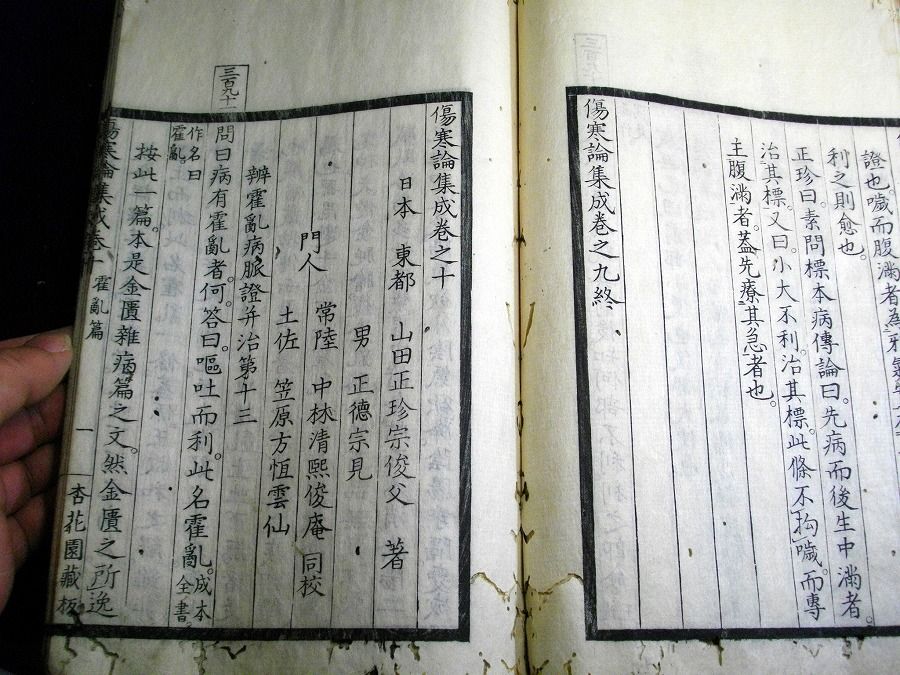 證也。噦而腹滿者
利之則愈也。
正珍曰。素問標本病傳論曰。先病而後生中滿者。
治其標。又曰。小大不利。治其標。此條不拘噦。而專
主腹滿者。蓋先療其急者也。
傷寒論集成卷之九終
傷寒論集成卷之十
日本 東都 山田正珍宗俊父 著
男 正德宗見
門人 常陸 中林清熙俊庵 同校
土佐 笠原方恆雲仙
辨霍亂病脈證并治第十三
三百九十一
問曰。病有霍亂者。何。答曰。嘔吐而利。此名霍亂。成本全書。
作名曰霍亂
按此一篇。本是金匱雜病篇之文。然金匱之所逸
傷寒論集成卷十 霍亂篇 一 杏花園藏板